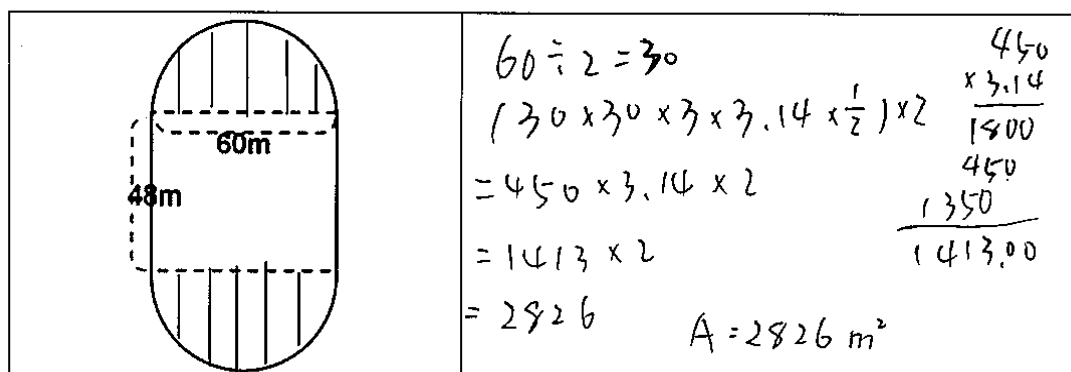 60m
48m
60÷2=30
(30×30×3×3.14×1/2)×2
=450×3.14×2
=1413×2
=2826
A=2826 m²
450
×3.14
1800
450
1350
1413.00